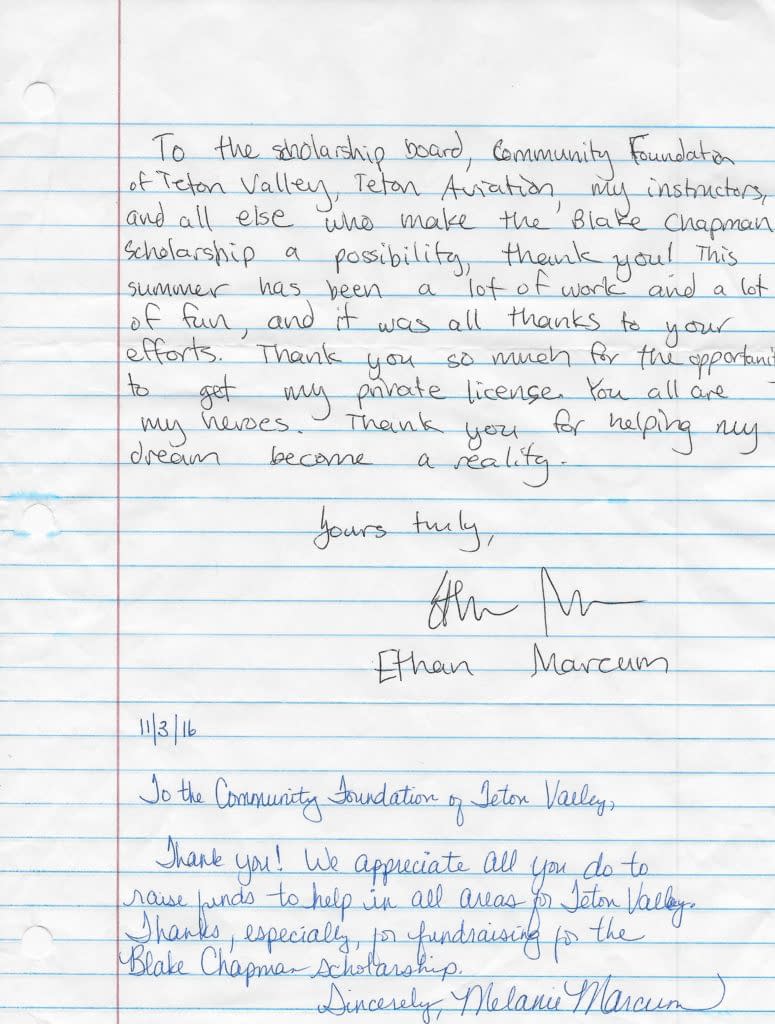 To the scholarship board, Community Foundation
of Teton Valley, Teton Aviation, my instructors,
and all else who make the Blake Chapman
Scholarship a possibility, thank you! This
summer has been a lot of work and a lot
of fun, and it was all thanks to your
efforts. Thank you so much for the opportunit
to get my private license. You all are
my heroes. Thank you for helping my
dream become a reality.
Yours truly,
Ethan Marcum
11/3/16
To the Community Foundation of Teton Valley,
Thank you! We appreciate all you do to
raise funds to help in all areas for Teton Valley.
Thanks, especially, for fundraising for the
Blake Chapman Scholarship.
Sincerely, Melanie Marcum